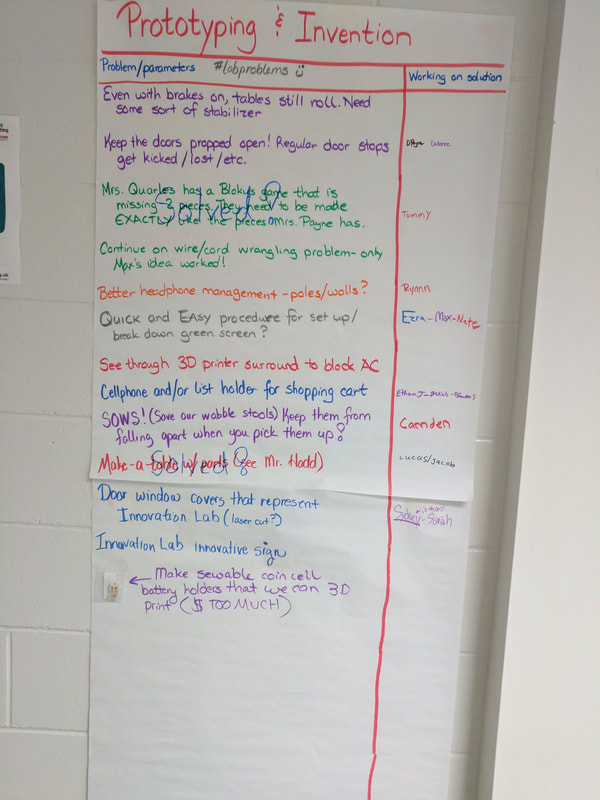 Prototyping & Invention
Problem/parameters #labproblems Working on solution
Even with brakes on, tables still roll. Need
some sort of stabilizer
Keep the doors propped open! Regular door stops
get kicked/lost/etc.
Mrs. Quarles has a Blokus game that is
missing 2 pieces. They need to be made
EXACTLY like the pieces Mrs. Payne has.
Solved!
Tommy
Continue on wire/cord wrangling problem-only
Max's idea worked!
Better headphone management -poles/walls? Ryann
Quick and EAsy procedure for set up/ Ezra-Max-Nate
break down green screen?
See through 3D printer surround to block AC
Cellphone and/or list holder for shopping cart
SOWS! (Save our wobble stools) Keep them from Camden
falling apart when you pick them up!
Make-a-table w/ parts (see Mr. Hodd) Lucas/Jacob
Solved!
Door window covers that represent
Innovation Lab (laser cut?) Sidney-Sarah
Innovation Lab innovative sign
Make sewable coin cell
battery holders that we can 3D
print ($ TOO MUCH)